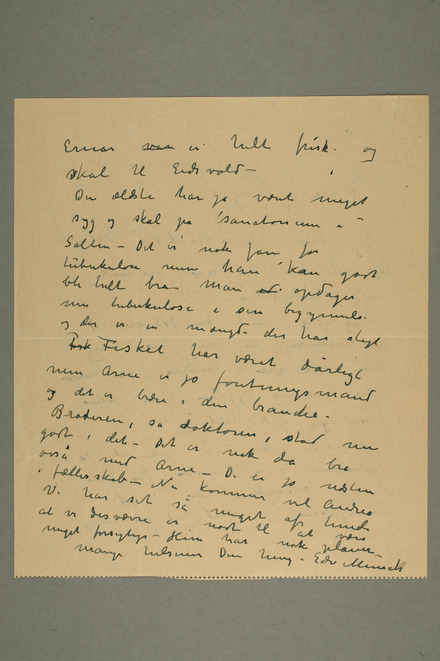 Einar er helt frisk. og
skal til Eidsvold –
Den ældste har jo været meget
syg og skal på sanatorium i
Salten – Det er nok fare for
tuberkulose men han kan godt
bli helt bra – Man opdager
nu tuberkulose i sin begyndelse
og der er en mængde der har sligt
Fisket har været dårligt
men Arne er jo forretningsmand
og det er bedre i den branche –
Broderen, sa doktoren, stod nu
godt i det – Det er nok da bra
også med Arne – De er jo næsten
i fællesskab – Nu kommer vel Andrea
Vi har set så meget af
at vi desværre er nødt til at være
meget forsigtige – har nok planer –
mange hilsener Din heng – Edv Munch